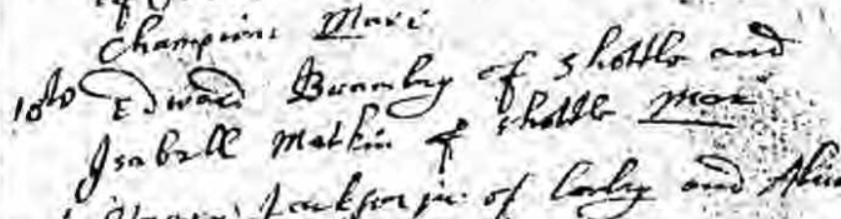 Champion: Mari:
10th Edward Brumby of Shottle and
Isabell Matkin of Shottle Mar
Jackson ju: of and